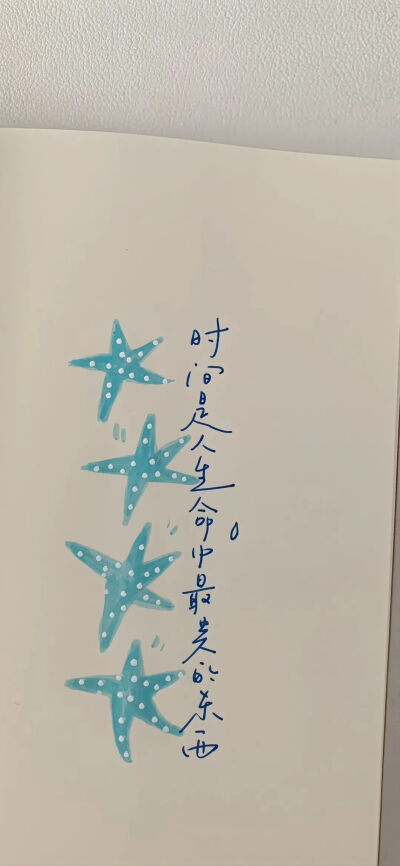 时间是人生命中最贵的东西